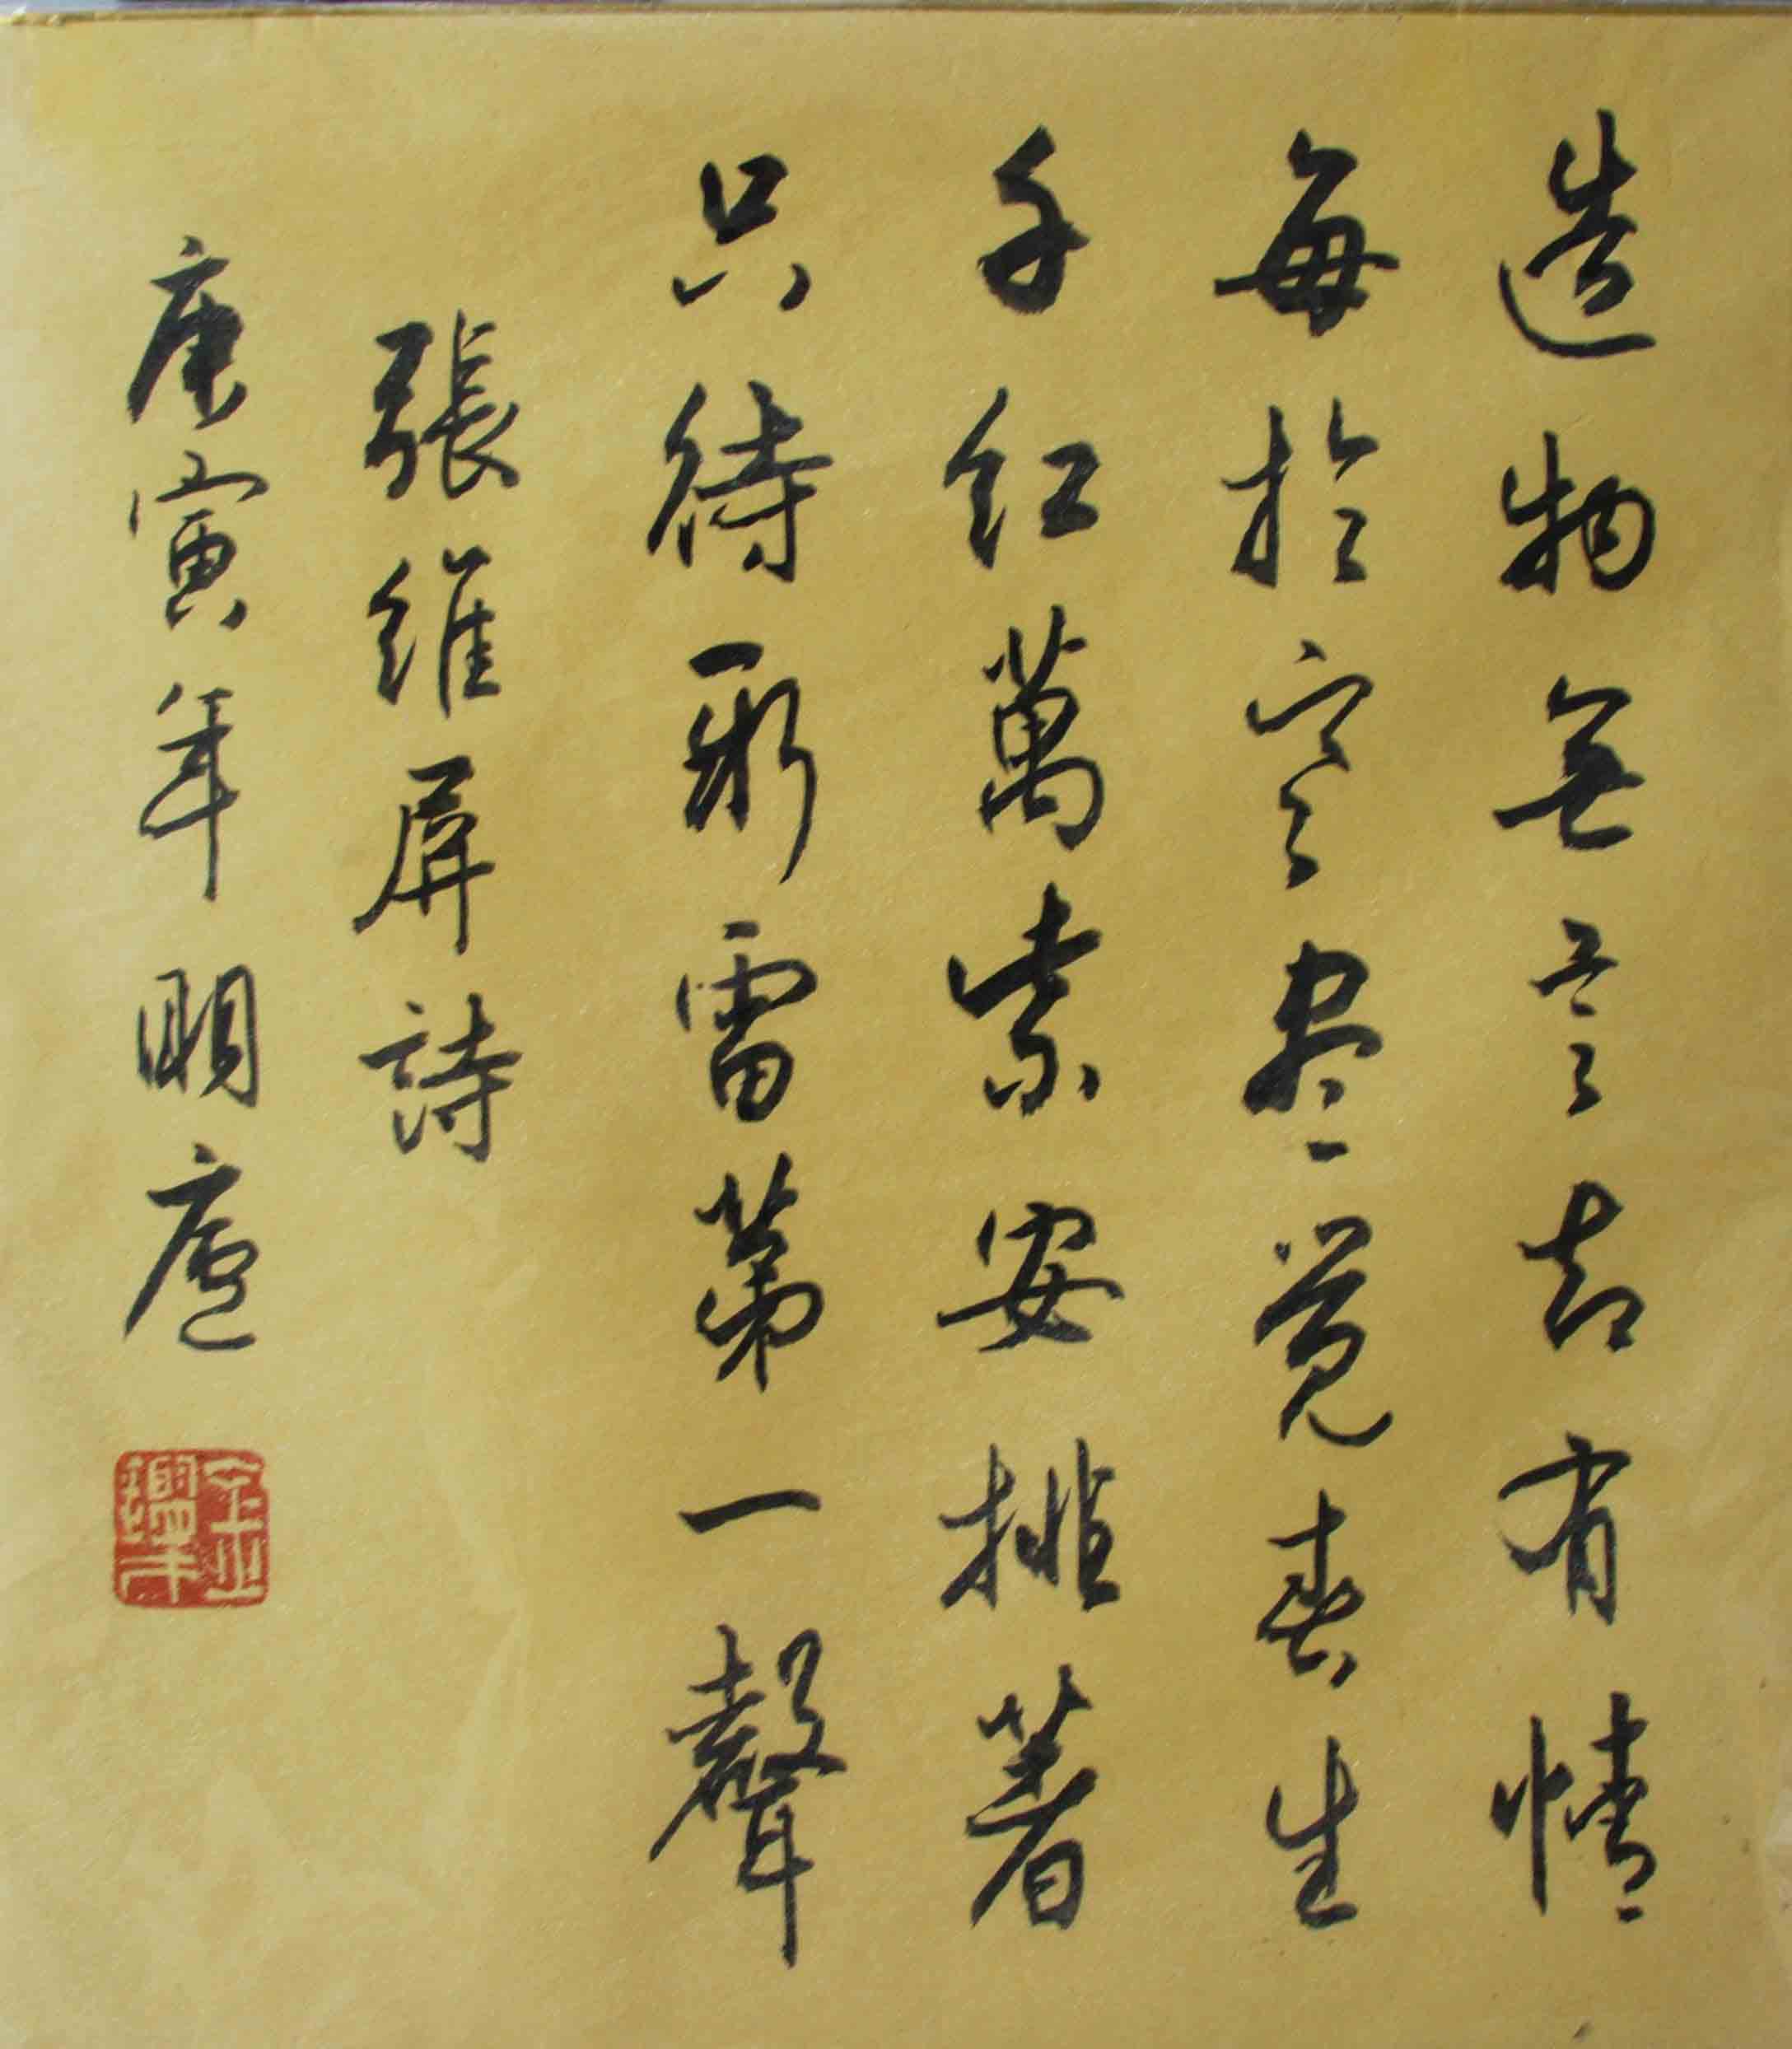 造物無言却有情
每於寒盡覺春生
千紅萬紫安排著
只待新雷第一聲
張維屏詩
庚寅年明廬